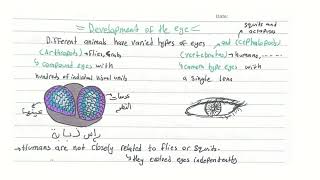 Date:
= Development of the eye =
squids and octopuses
Different animals have varied types of eyes
and (Cephalopods)
(Arthropods) → Flies, Crabs
(vertebrates) → Humans, ......
↳ compound eyes with
↳ camera type eyes with
hundreds of individual visual units
a single lens
عدسات
رأس ذبابة
→ Humans are not closely related to flies or squids.
↳ they evolved eyes independently